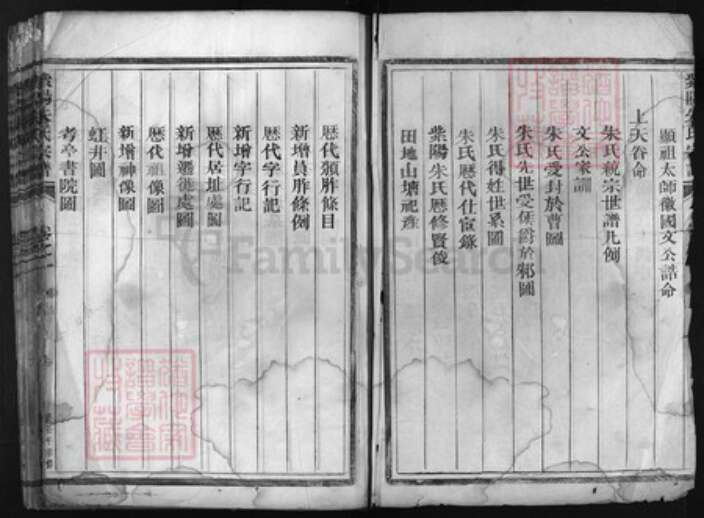 顯祖太師徽國文公誥命
上天眷命
朱氏統宗世譜凡例
文公家訓
朱氏受封於曹圖
朱氏先世受侯爵於邾圖
朱氏得姓世系圖
朱氏歷代仕宦錄
紫陽朱氏歷修賢俊
田地山塘祀產
歷代頒胙條目
新增員胙條例
歷代字行記
新增字行記
歷代居址處圖
新增遷徙處圖
歷代祖像圖
新增神像圖
虹井圖
考亭書院圖
紫陽朱氏宗譜
FamilySearch